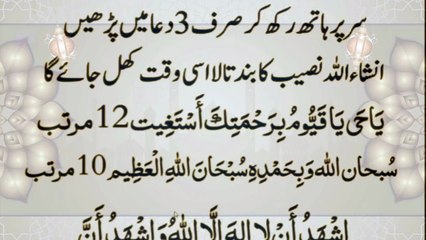 سر پر ہاتھ رکھ کر صرف 3 دعا میں پڑھیں
انشاء اللہ نصیب کا بند تالا اسی وقت کھل جائے گا
يَاحَى يَا قَيُّومُ بِرَحْمَتِكَ أَسْتَغِيت 12 مرتب
سُبحان الله وَبِحَمْدِهِ سُبْحَانَ اللهِ الْعَظِيم 10 مرتب
اشْهَدُ أَنْ لا إِلهَ إِلَّا اللهُ وَاشْهَدُ أَنَّ